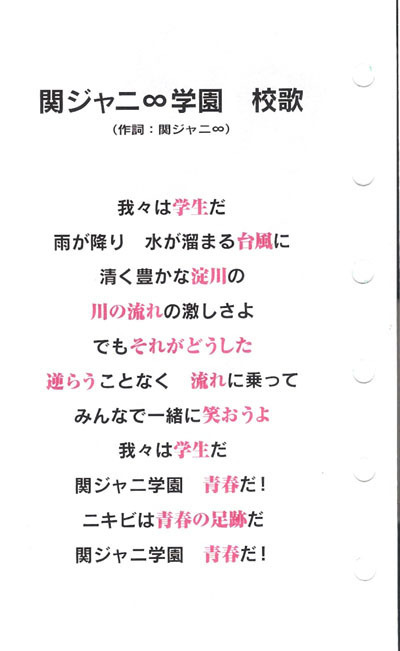 関ジャニ∞学園　校歌
（作詞：関ジャニ∞）
我々は学生だ
雨が降り　水が溜まる台風に
清く豊かな淀川の
川の流れの激しさよ
でもそれがどうした
逆らうことなく　流れに乗って
みんなで一緒に笑おうよ
我々は学生だ
関ジャニ学園　青春だ！
ニキビは青春の足跡だ
関ジャニ学園　青春だ！